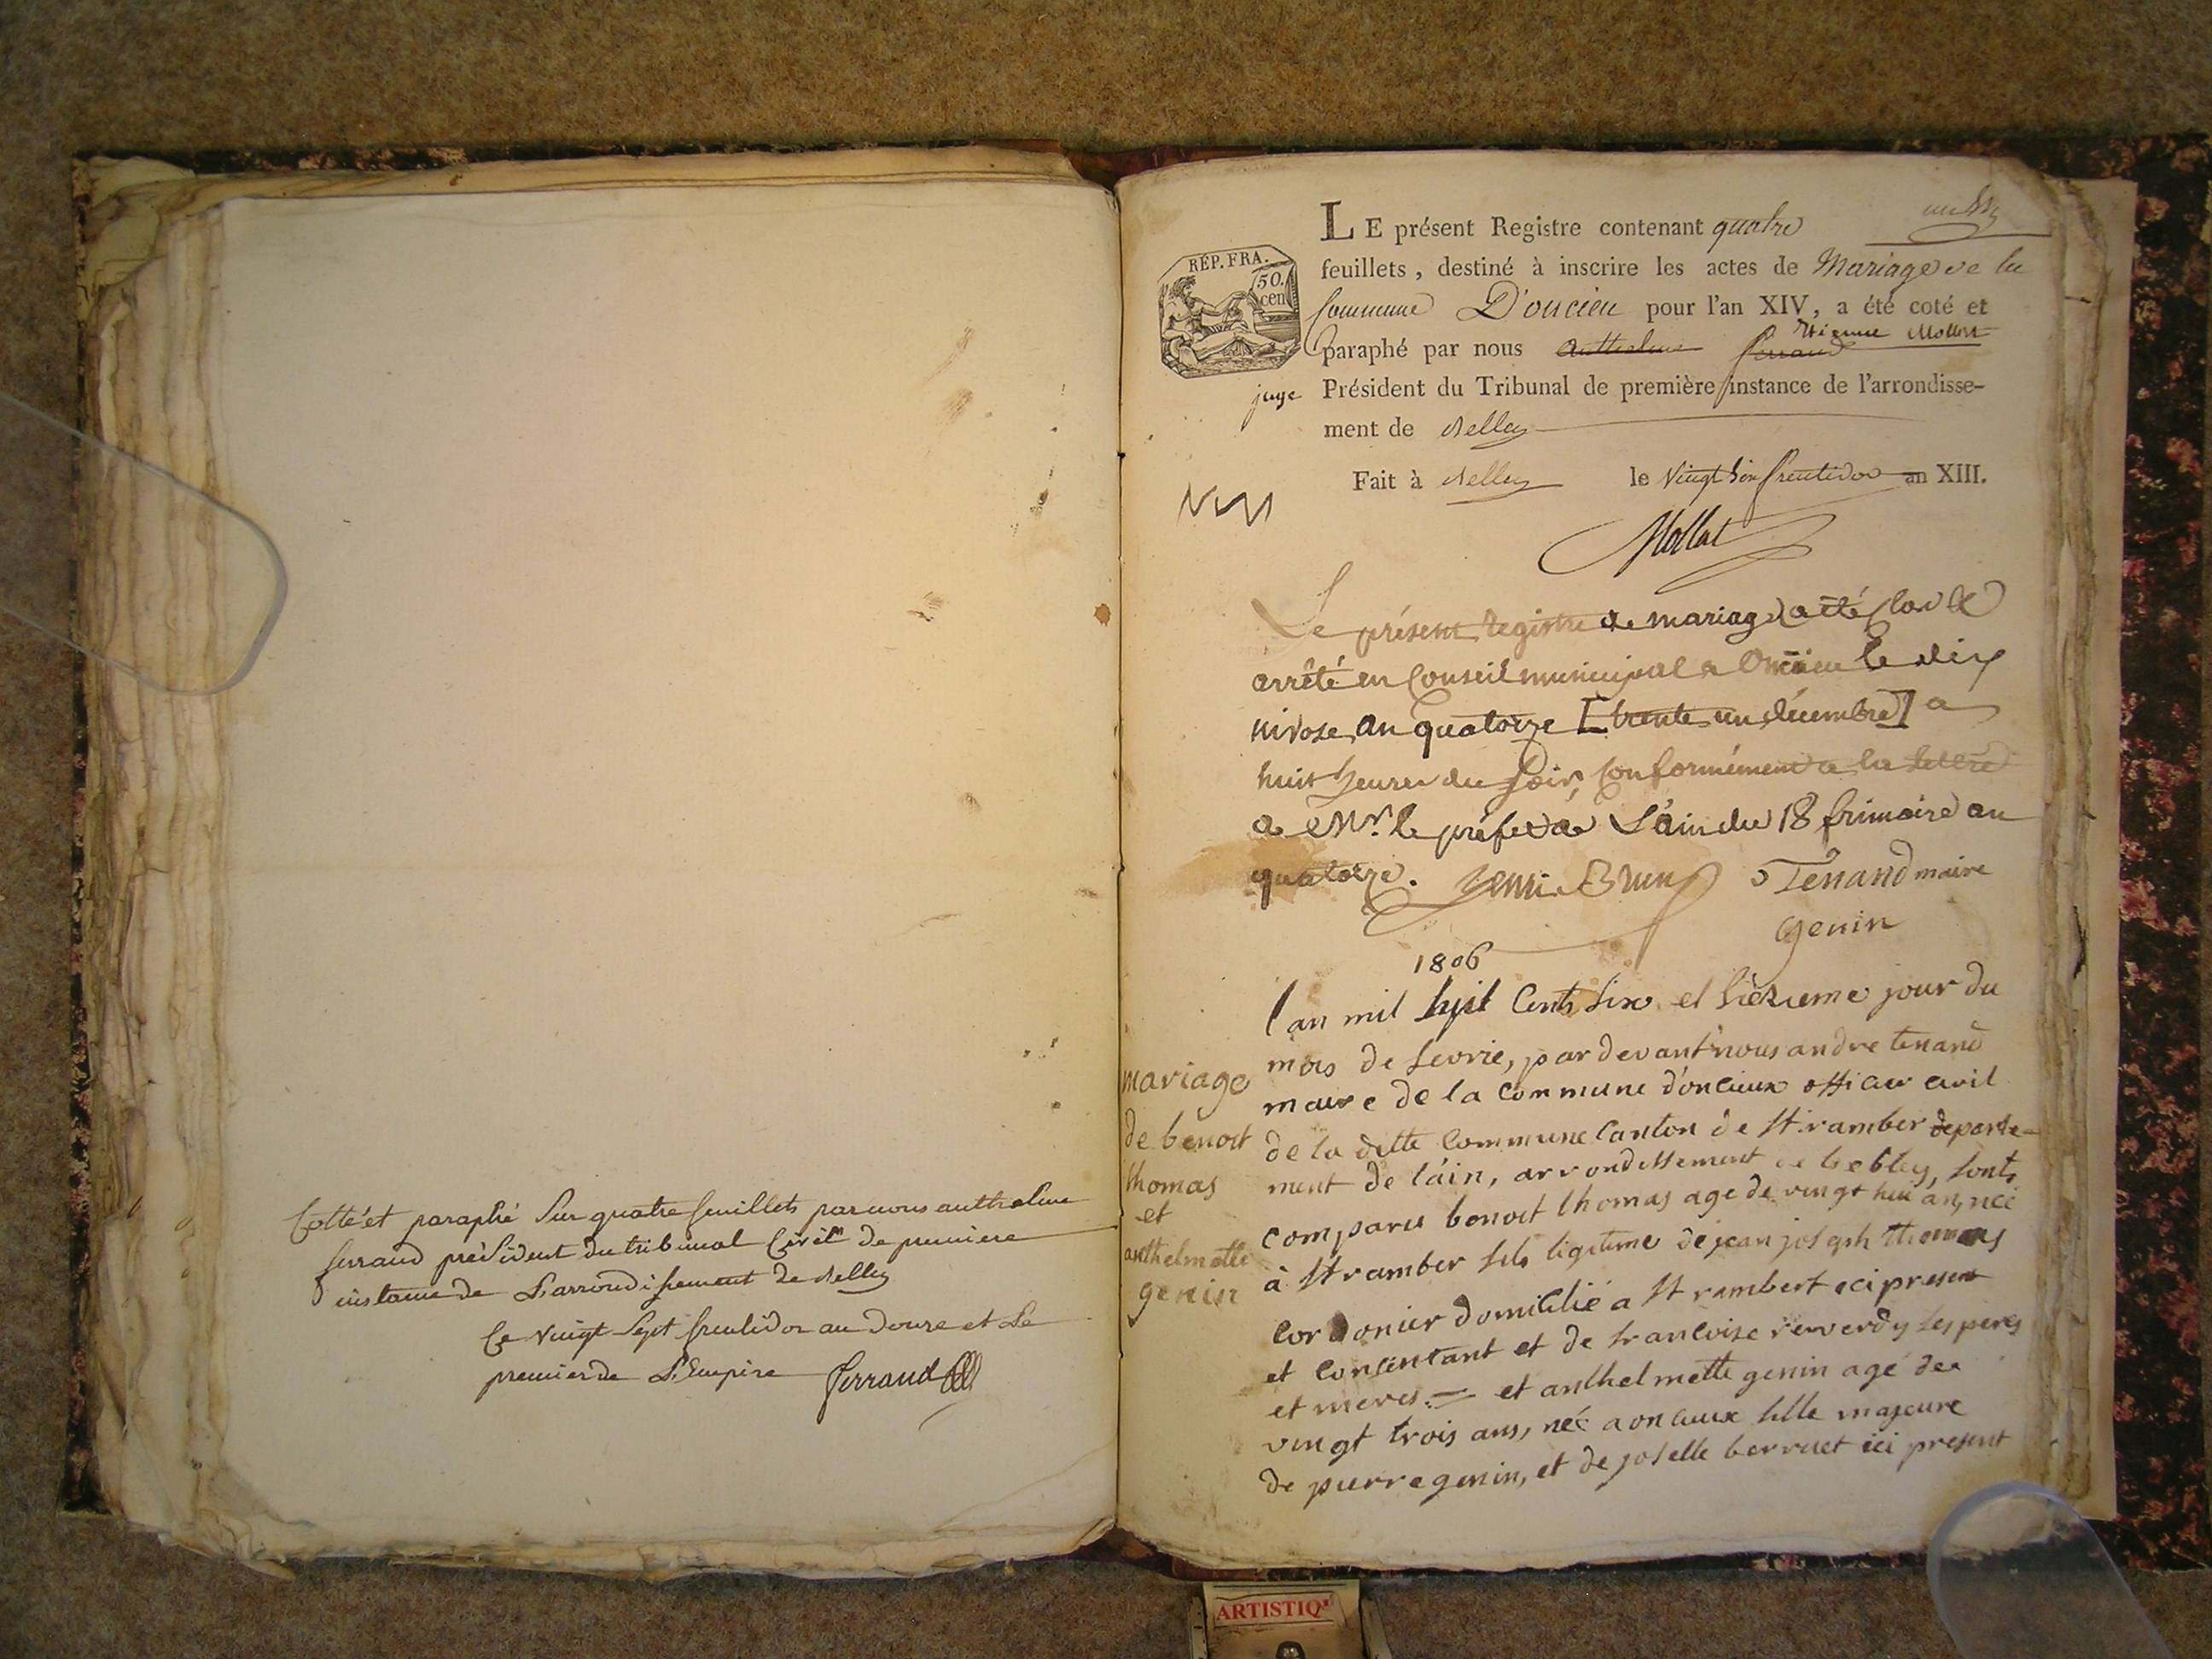 Cotté et paraphé sur quatre feuillets par nous anthelme
ferrand président du tribunal Civil de premiere
instance de L'arrondissement de Belley
Ce vingt sept fructidor an douze et Le
premier de L'Empire ferrand
LE présent Registre contenant quatre
feuillets, destiné à inscrire les actes de Mariage de la
Commune D'oncieu pour l'an XIV, a été coté et
Etienne Mollet
paraphé par nous anthelme ferrand
juge Président du Tribunal de première instance de l'arrondisse-
ment de Belley
Fait à Belley le Vingt fructidor an XIII.
RÉP. FRA.
50.
cen
Mollet
Le présent registre de mariage a été clos et
arrêté en Conseil municipal a Oncieu le dix
nivose an quatorze [trente un décembre] a
huit heures du soir, conformément a la lettre
de Mr. le préfet de L'ain du 18 frimaire an
quatorze. Brun Tenand maire
genin
1806
mariage
de benoit
thomas
et
anthelmette
genin
l'an mil huit Cents six et sièzieme jour du
mois de fevrie, par devant nous andre tenand
maire de la Commune d'oncieux officier civil
de la ditte Commune Canton de St ramber departe-
ment de l'ain, arrondissement de belley, sonts
comparu benoit thomas age de vingt huit an, neé
à St ramber fils ligitime de jean joseph thomas
Cordonier domicilié a St rambert ici present
et Consentant et de francoise reverdy ses peres
et meres. = et anthelmette genin agé de
vingt trois ans, neé a oncieux fille majeure
de pierre genin, et de joselle berruet ici present
ARTISTIQ